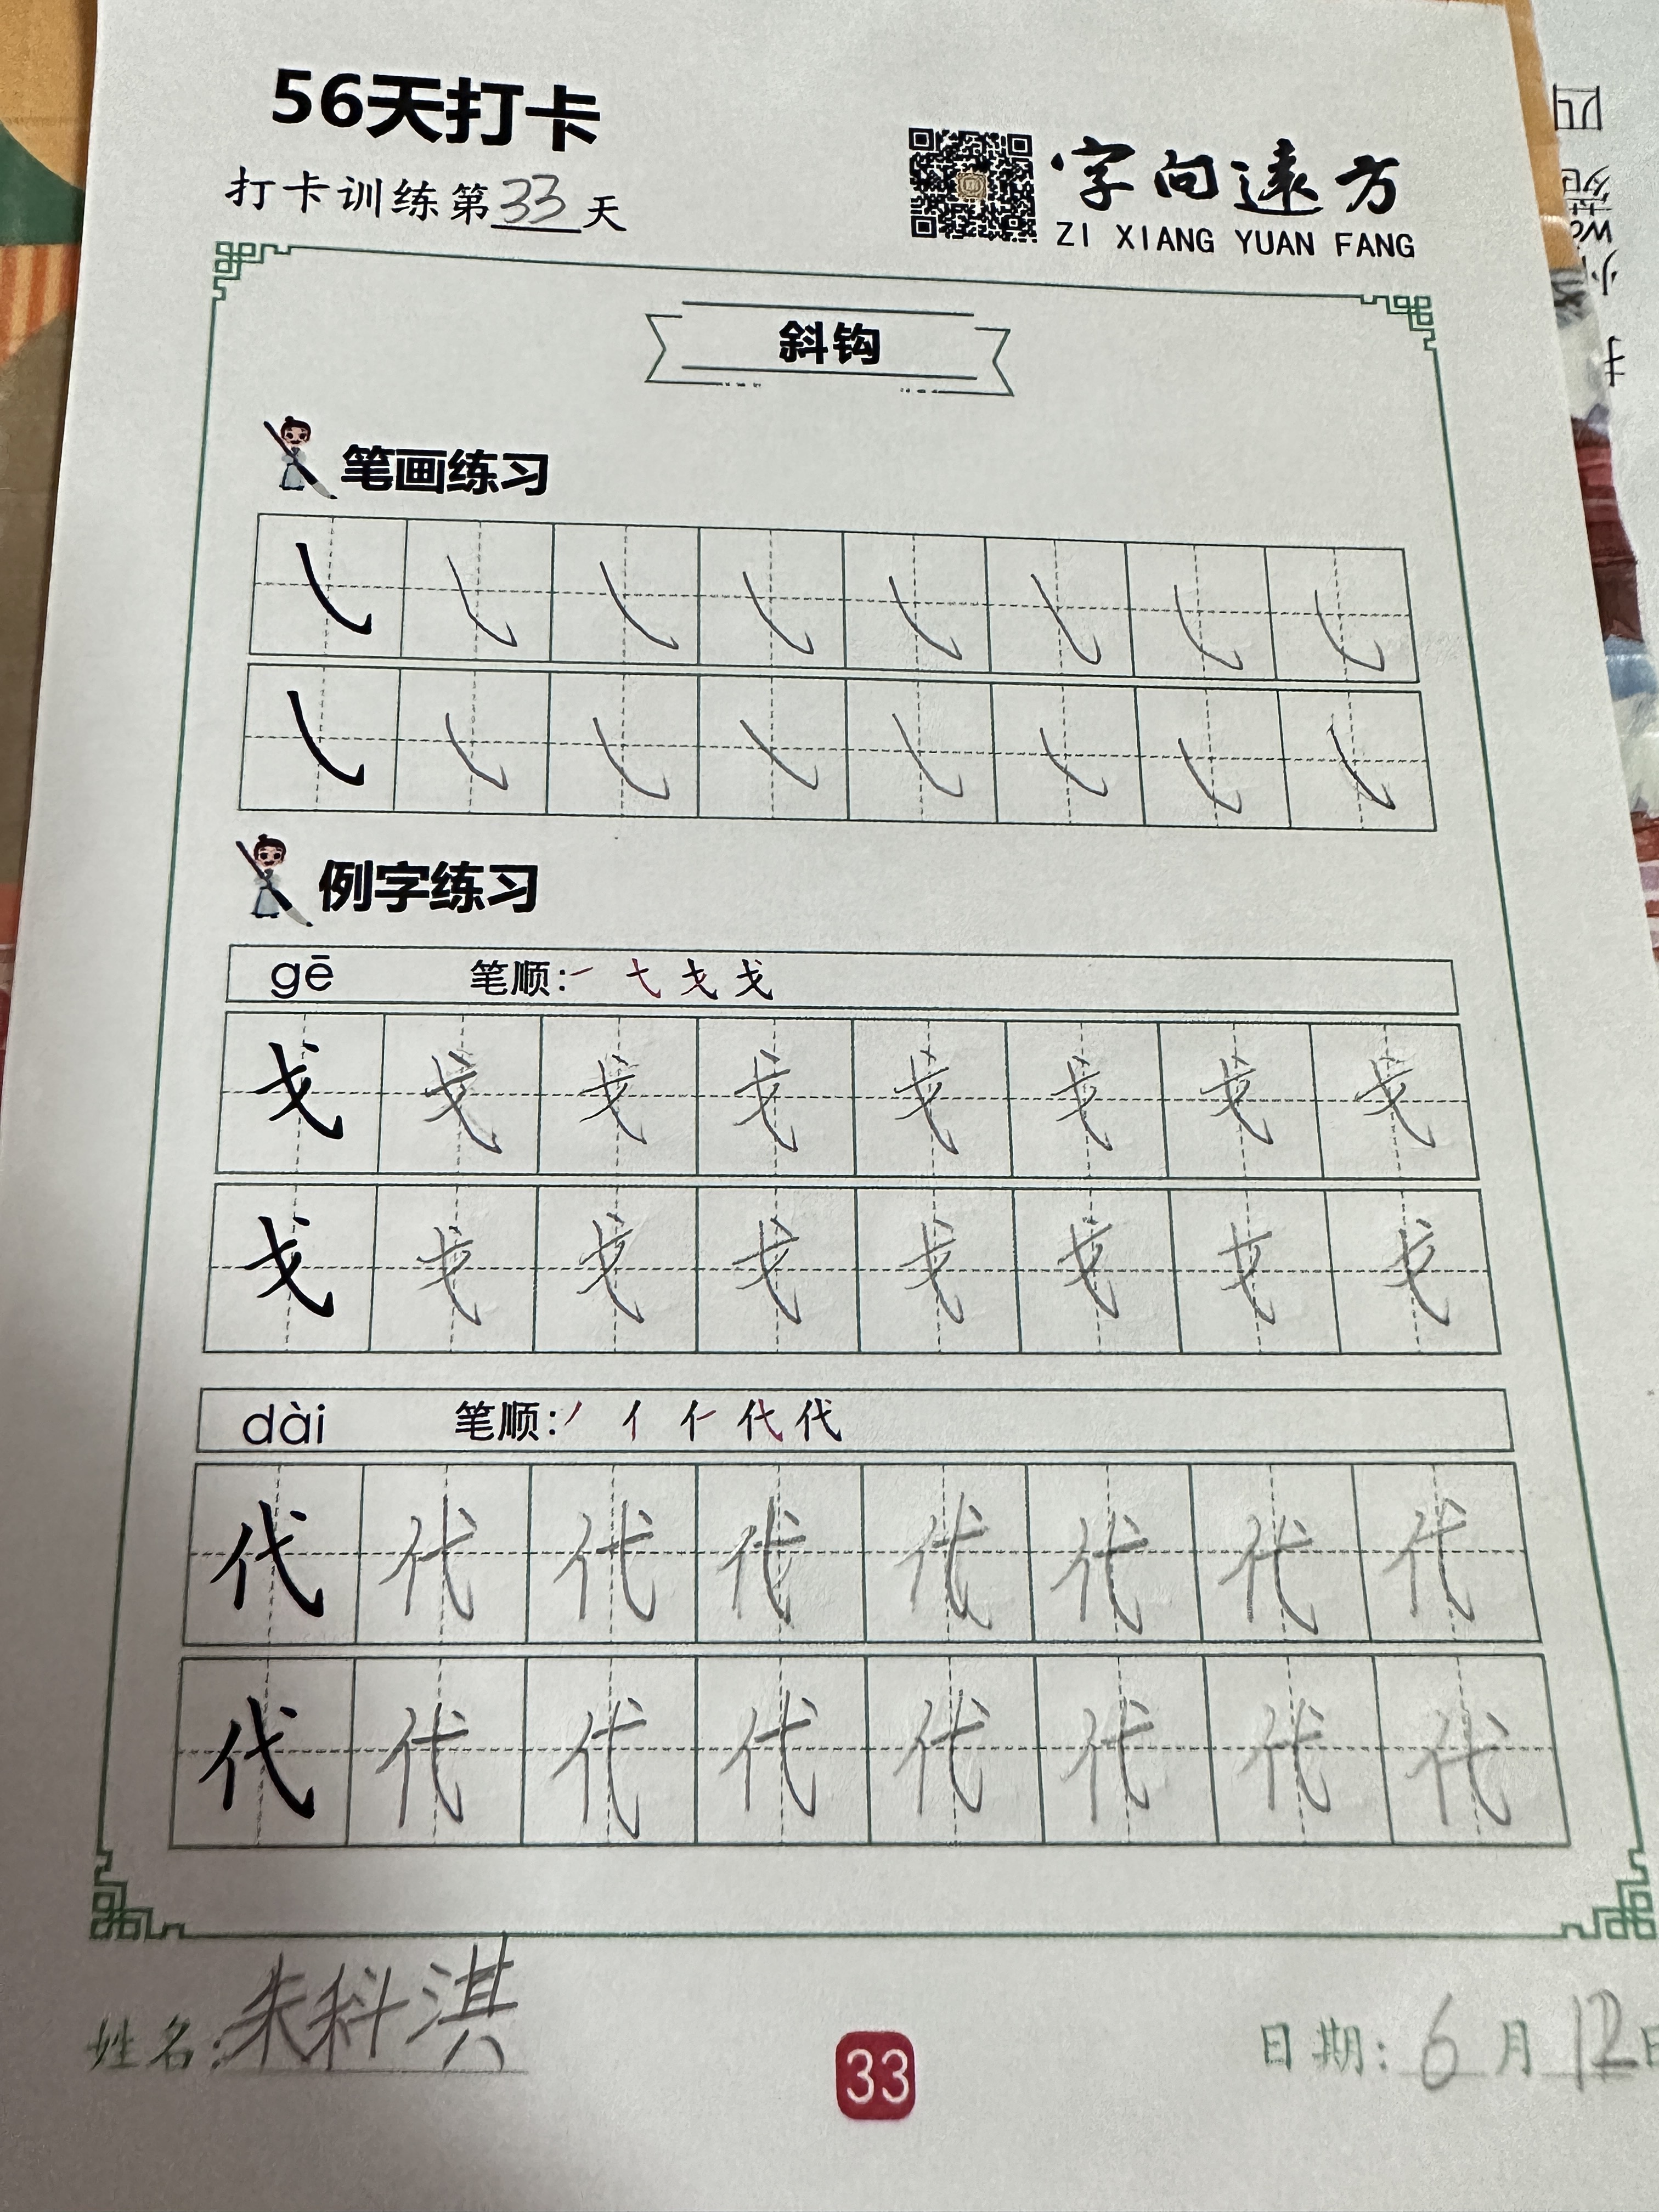 56天打卡
打卡训练第33天
字向遠方
ZI XIANG YUAN FANG
斜钩
笔画练习
例字练习
gē 笔顺:一 弋 戈 戈
戈 戈 戈 戈 戈 戈 戈 戈
戈 戈 戈 戈 戈 戈 戈 戈
dài 笔顺:丿 亻 仁 代 代
代 代 代 代 代 代 代 代
代 代 代 代 代 代 代 代
姓名:朱科淇
33
日期:6月12日
四